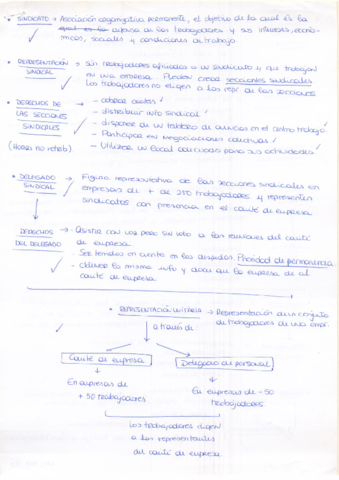 • SINDICATO → Asociación organizativa permanente, el objetivo de la cual es la
defensa de los trabajadores y sus intereses, econó-
micos, sociales y condiciones de trabajo.
• REPRESENTACIÓN SINDICAL → Sin trabajadores afiliados a un sindicato y que trabajan
en una empresa. Pueden crear secciones sindicales
Los trabajadores no eligen a los repr de las secciones
• DERECHOS DE LAS SECCIONES SINDICALES
(Horas no retrib)
- cobrar cuotas
- distribuir info sindical
- disponer de un tablero de anuncios en el centro trabajo
- Participar en negociaciones colectivas
- Utilizar un local adecuado para sus actividades.
• DELEGADO SINDICAL → Figura representativa de las secciones sindicales en
empresas de + de 250 trabajadores y representen
sindicatos con presencia en el comité de empresa
DERECHOS DEL DELEGADO → - Asistir con voz pero sin voto a las reuniones del comité
de empresa.
- Ser tenidos en cuenta en los despidos. Prioridad de permanencia
- obtener la misma info y que la empresa da al
comité de empresa
• REPRESENTACIÓN UNITARIA → Representación de un conjunto
de trabajadores de una empr.
a través de
Comité de empresa
Delegado de personal
En empresas de
+ 50 trabajadores
En empresas de - 50
trabajadores
Los trabajadores eligen
a los representantes
del comité de empresa